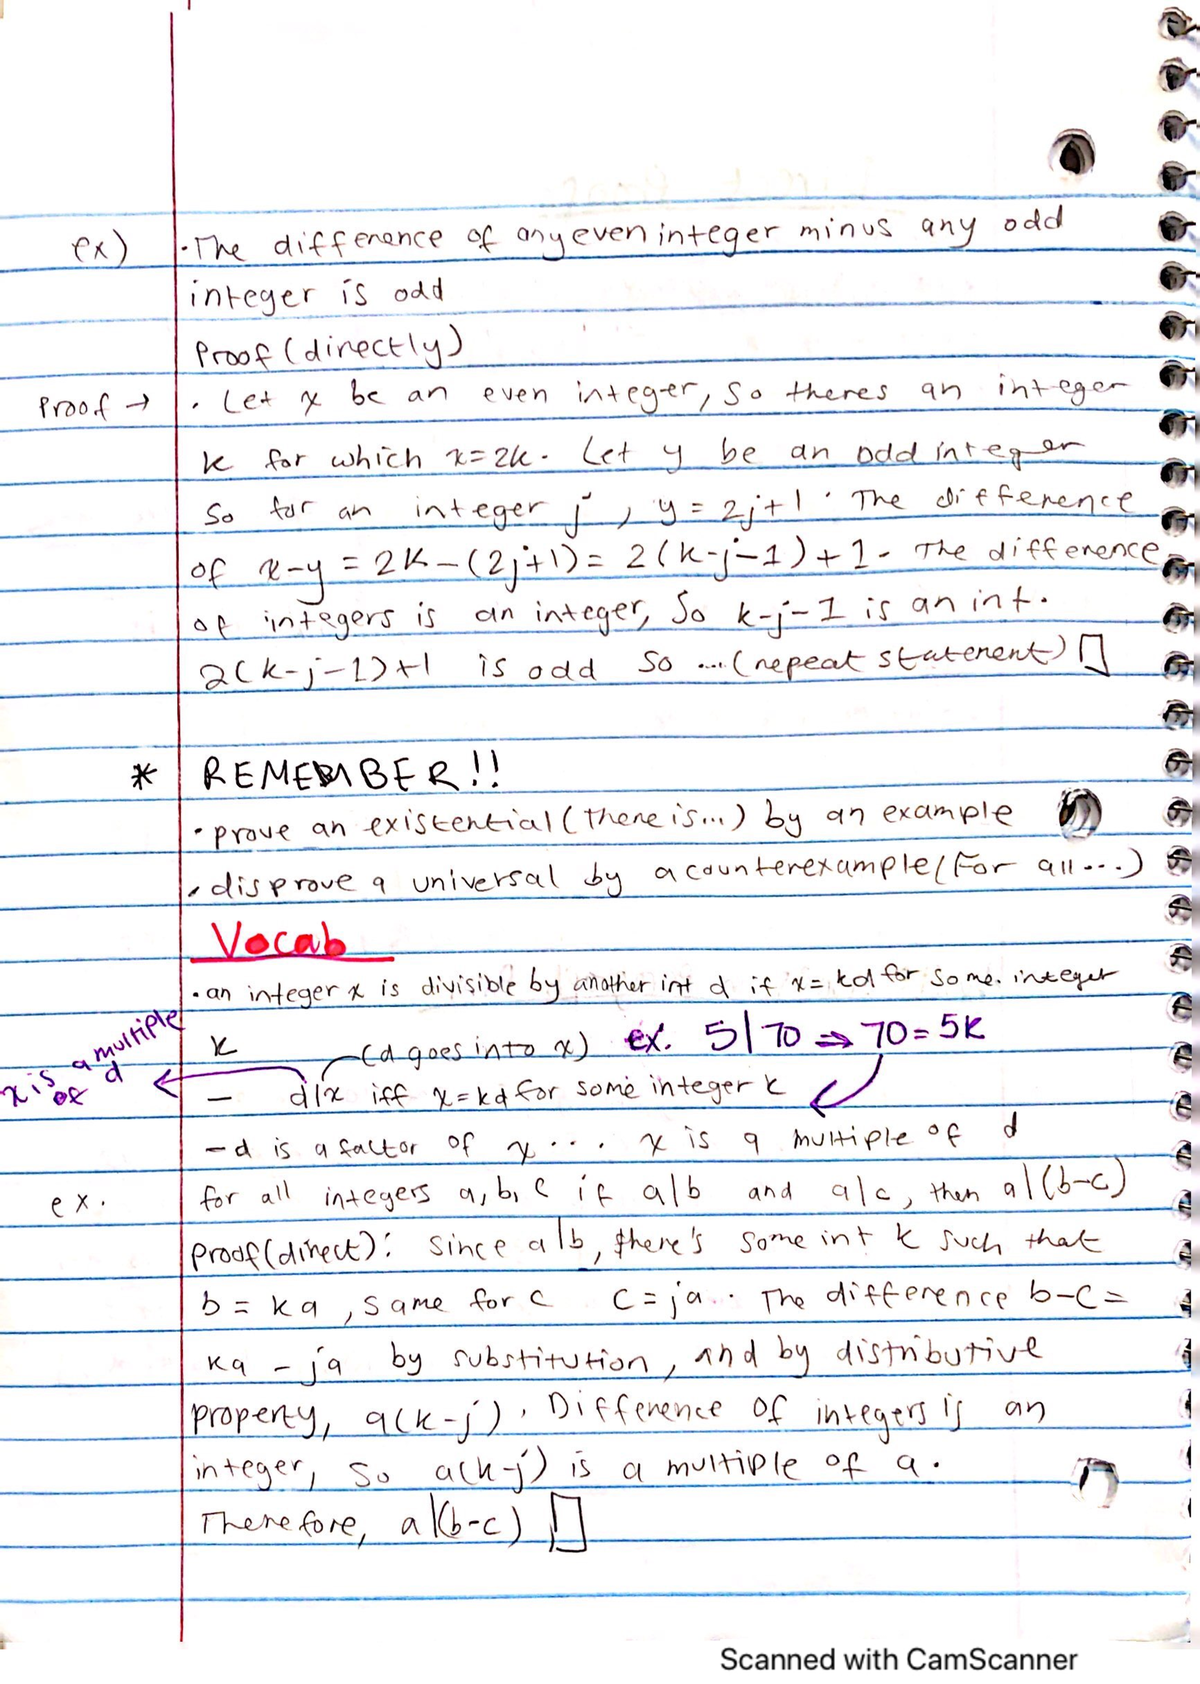 ex) •The difference of any even integer minus any odd
integer is odd
Proof (directly)
Proof → • Let x be an even integer, so theres an integer
k for which x=2k. Let y be an odd integer
So for an integer j, y = 2j+1. The difference
of x-y = 2k-(2j+1) = 2(k-j-1)+1. The difference
of integers is an integer, So k-j-1 is an int.
2(k-j-1)+1 is odd so ...(repeat statement) □
* REMEMBER!!
•prove an existential (there is...) by an example
•disprove a universal by a counterexample (For all...)
Vocab
•an integer x is divisible by another int d if x=kd for some integer
k (d goes into x) ex. 5|70 ⇒ 70=5k
x is a multiple of d
– d|x iff x=kd for some integer k
–d is a factor of x ... x is a multiple of d
ex. for all integers a, b, c if a|b and a|c, then a|(b-c)
Proof(direct): Since a|b, there's some int k such that
b = ka, same for c c=ja. The difference b-c=
ka - ja by substitution, and by distributive
property, a(k-j). Difference of integers is an
integer, so a(k-j) is a multiple of a.
Therefore, a|(b-c) □
Scanned with CamScanner